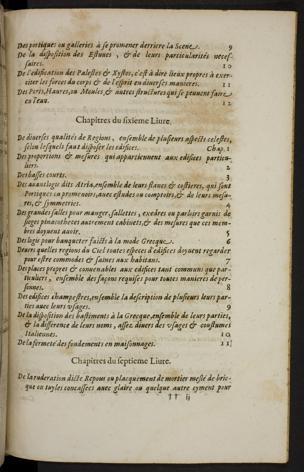 Des portiques ou galleries à se promener derriere la Scene. 9
De la disposition des Estuues, & de leurs particularités neces-
saires. 10
De l'edification des Palestes & Xystes, c'est à dire lieux propres à exer-
citer les forces du corps & de l'esprit en diuerses manieres. 11
Des Ports, Haures, ou Moules, & autres structures qui se peuuent faire
en l'eau. 12
Chapitres du sixieme Liure.
De diuerses qualités de Regions, ensemble de plusieurs aspects celestes,
selon lesquels faut disposer les edifices. Chap. 1
Des proportions & mesures qui appartiennent aux edifices particu-
liers. 2
Des basses courts. 3
Des auantlogis dits Atria, ensemble de leurs flancs & costieres, qui sont
Portiques ou promenoirs, auec estudes ou comptoirs, & de leurs mesu-
res, & symmetries. 4
Des grandes salles pour manger, sallettes, exedres ou parloirs garnis de
sieges pinacotheces autrement cabinets, & des mesures que ces mem-
bres doyuent auoir. 5
Des logis pour banqueter faicts à la mode Grecque. 6
Deuers quelles regions du Ciel toutes especes d'edifices doyuent regarder
pour estre commodes & saines aux habitans. 7
Des places propres & conuenables aux edifices tant communs que par-
ticuliers, ensemble des façons requises pour toutes manieres de per-
sonnes. 8
Des edifices champestres, ensemble la description de plusieurs leurs par-
ties auec leurs vsages. 9
De la disposition des bastiments à la Grecque, ensemble de leurs parties,
& la difference de leurs noms, assez diuers des vsages & coustumes
Italiennes. 10
De la fermeté des fondements en maisonnages. 11
Chapitres du septieme Liure.
De la ruderation dicte Repous ou placquement de mortier meslé de bric-
que ou tuyles concassées auec glaire ou quelque autre cyment pour
¶¶ ij